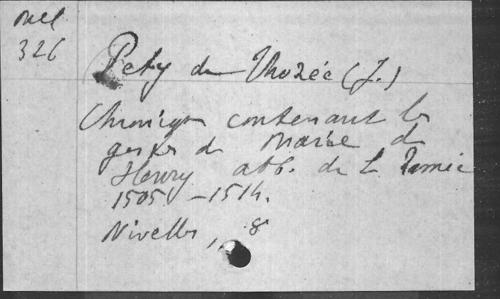 Mel
326
Pety de Thozée (J.)
Chronique contenant les
gestes de Marie de
Henry abb. de la Ramée
1505 - 1514.
Nivelles, 8